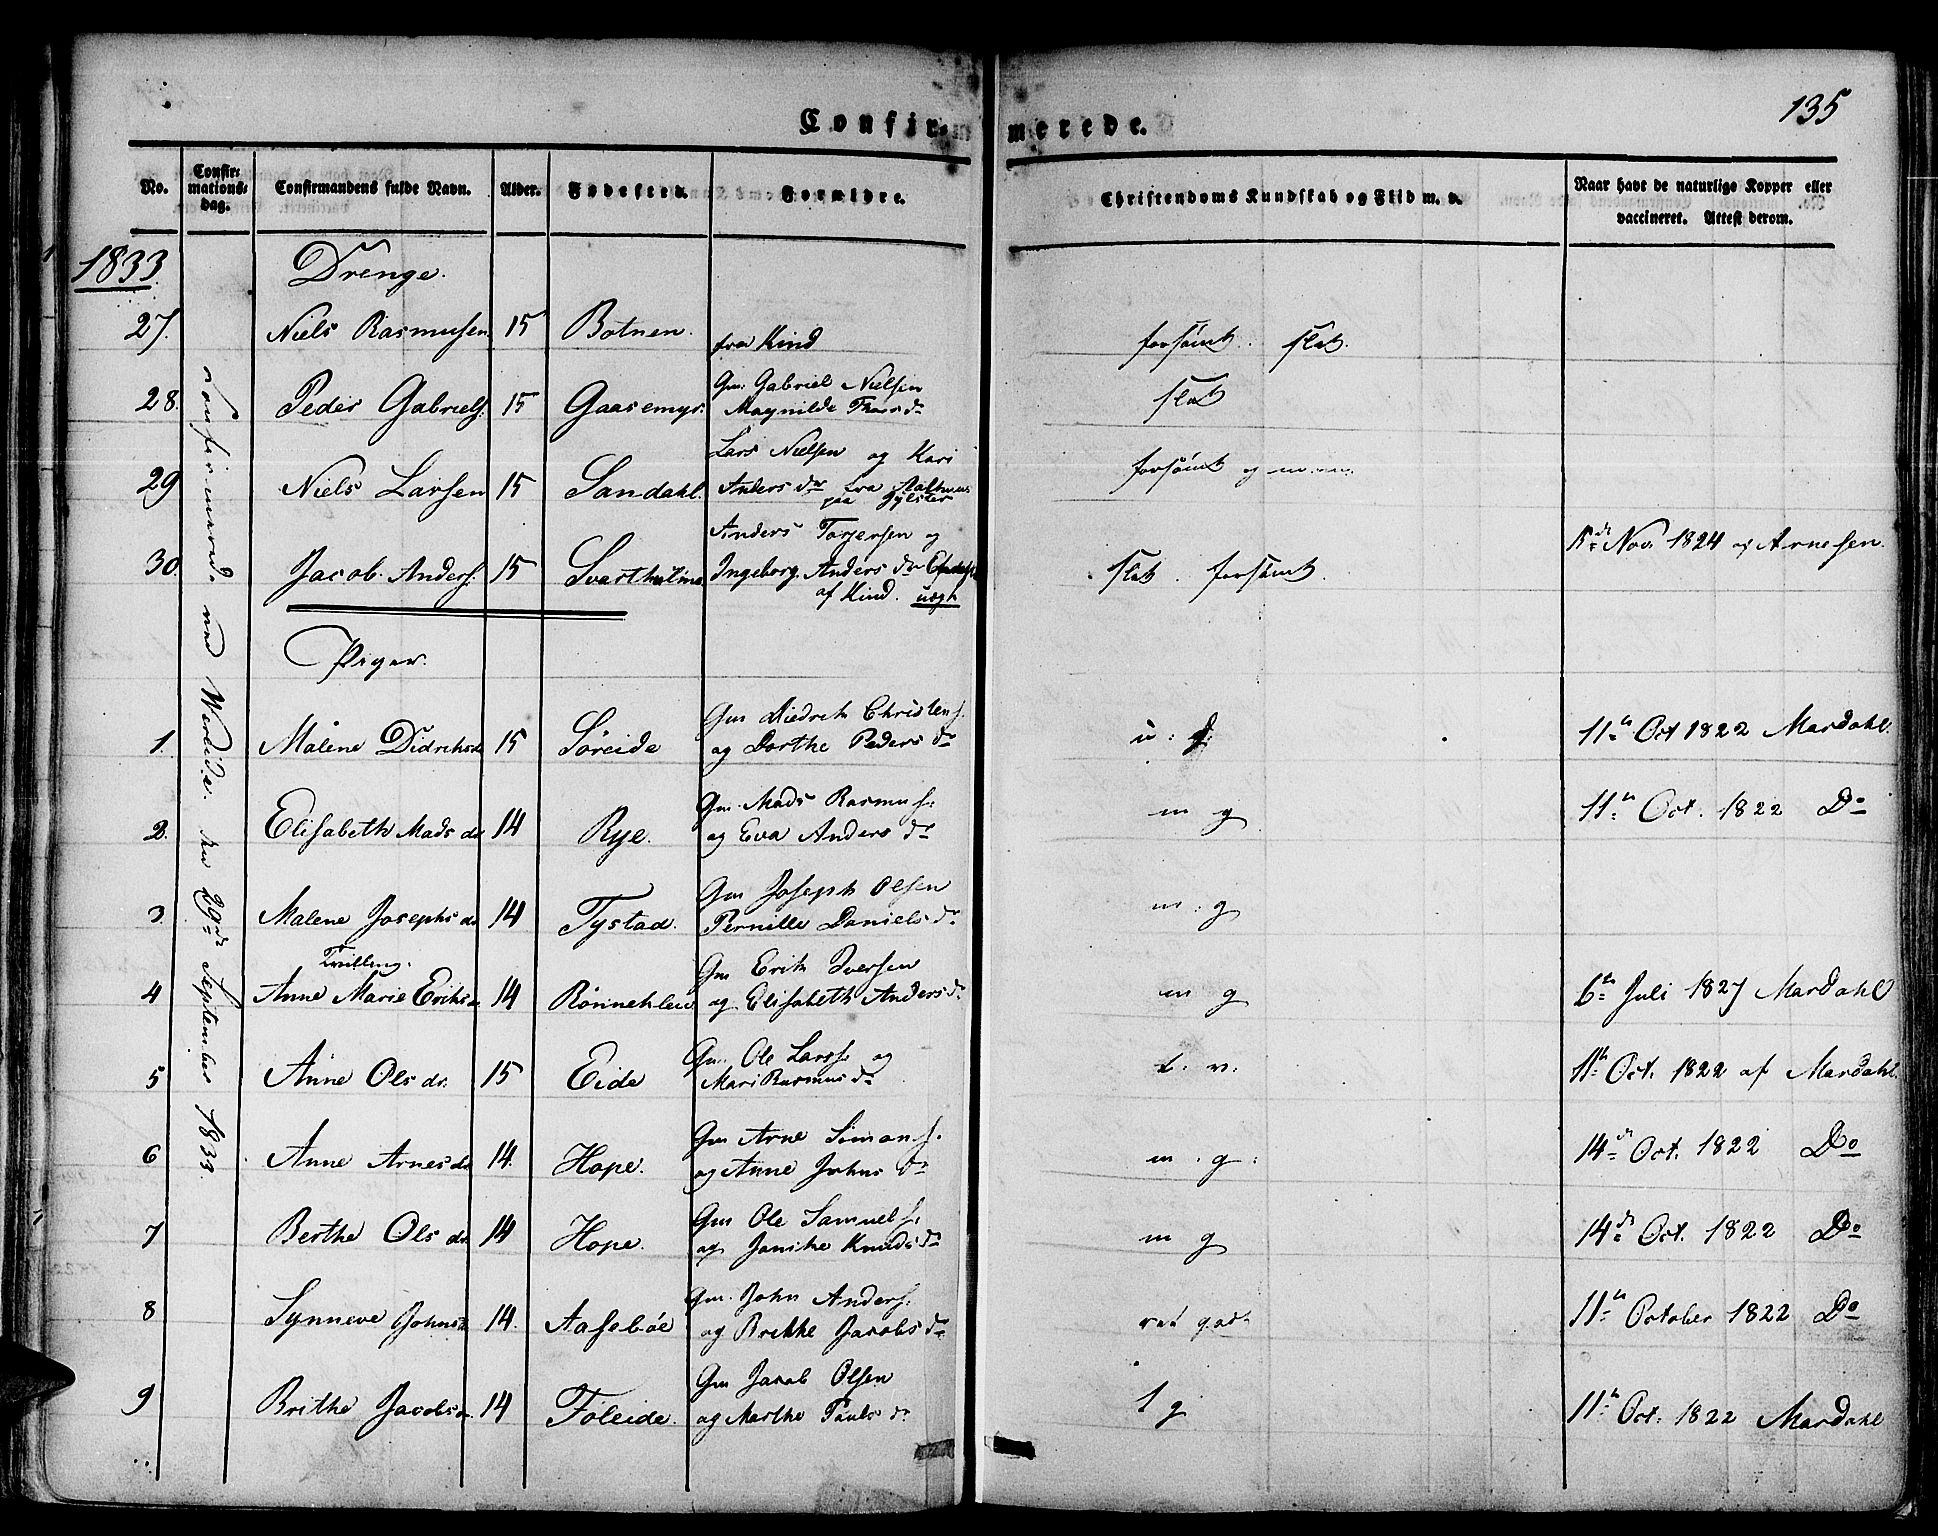 135
Confirmerede.
No.
Confirmationsdag.
Confirmandens fulde Navn.
Alder.
Fødested.
Forældre.
Christendoms Kundskab og Flid m. v.
Naar havt de naturlige Kopper eller vaccineret. Attest derom.
1833
Drenge.
Confirmerede ved Wereide. den 29de September 1833.
27. Niels Rasmusen 15 Botnen. fra Kind forsömt. slet.
28. Peder Gabriels. 15 Gaasemyr. Gm. Gabriel Nielsen
Magnilde Thors dr slet
29 Niels Larsen 15 Sandahl. Lars Nielsen og Kari
Anders dr fra
paa Gylster forsömt og
30. Jacob Anders. 15 Anders Torgersen og
Ingeborg Anders dr
af Kind. uægt slet. forsömt. 15de Nov. 1824 af Arnesen.
Piger.
1. Malene Didrichsd 15 Söreide Gm Diedrich Christens.
og Dorthe Peders dr 11te Oct 1822 Mardahl.
2. Elisabeth Mads dr 14 Rye. Gm. Mads Rasmus.
og Eva Anders dr m g 11te Oct. 1822 Do
3. Malene Josephs dr 14 Tystad. Gm Joseph Olsen
Pernille Daniels dr m. g
Tvilling.
4 Anne Marie Eriksd 14 Rönnekleiv Gm Erik Iversen
og Elisabeth Anders dr m g 6te Juli 1827 Mardahl
5 Anne Ols dr. 15 Eide Gm. Ole Larss. og
Mari Rasmus dr 11te Oct. 1822 af Mardahl.
6 Anne Arnes dr 14. Hope. Gm Arne Simons.
og Anne Johns dr m. g. 14de Oct. 1822 Do
7 Berthe Ols dr 14 Hope. Gm Ole Samuels.
og Janike Knuds dr m g 14de Oct. 1822 Do
8 Synneve Johnsd 14. Aaseböe Gm. John Anders.
og Brithe Jacobs dr 11te October 1822 Do
9 Brithe Jacobsd. 14 Föleide. Gm Jacob Olsen
og Marthe Pauls dr g 11te Oct. 1822 Mardahl